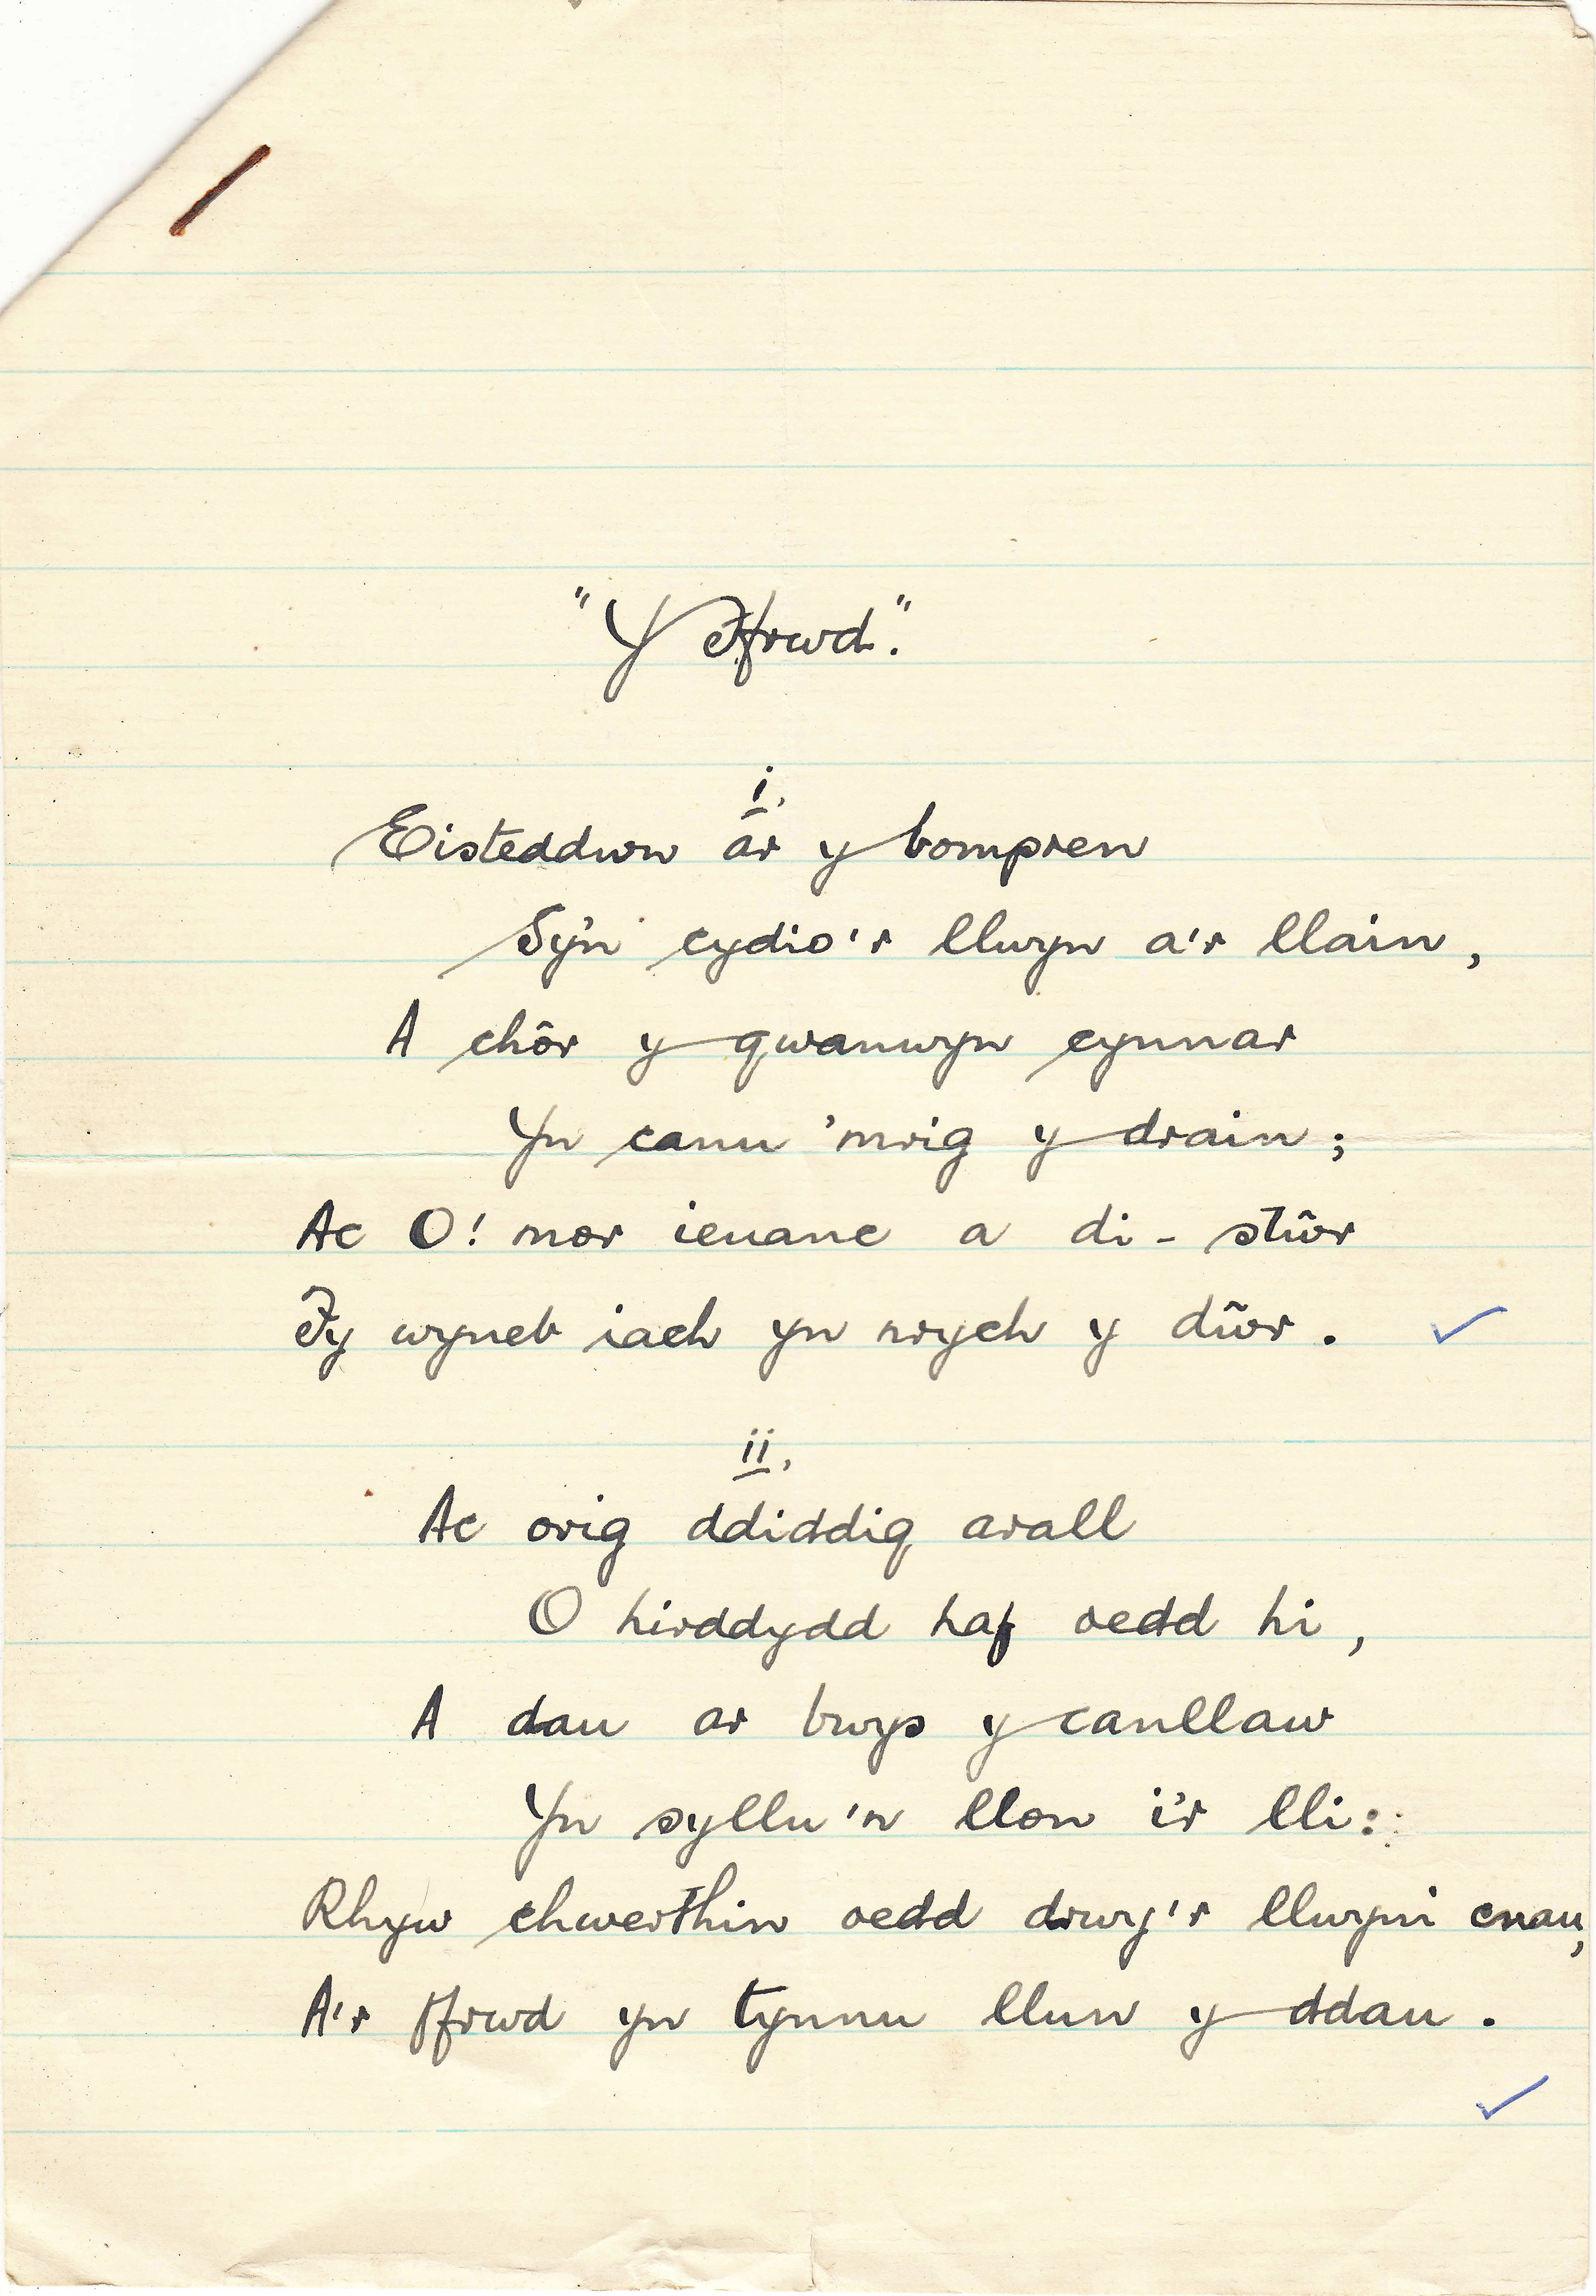 "Y Ffrwd".
i.
Eisteddwn ar y bompren
Sy'n cydio'r llwyn a'r llain,
A chôr y gwanwyn cynnar
Yn canu 'mrig y drain;
Ac O! mor ieuanc a di-stŵr
Fy wyneb iach yn nrych y dŵr.
ii.
Ac orig ddiddig arall
O hirddydd haf oedd hi,
A dau ar bwys y canllaw
Yn syllu'n llon i'r lli:
Rhyw chwerthin oedd drwy'r llwyni cnau,
A'r ffrwd yn tynnu llun y ddau.